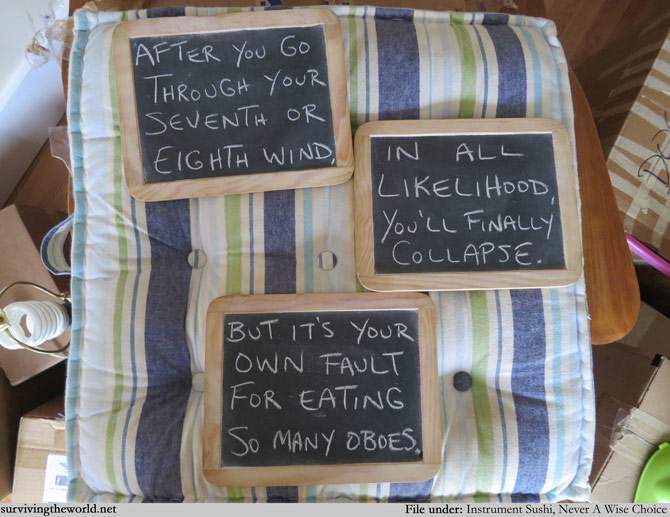 AFTER YOU GO
THROUGH YOUR
SEVENTH OR
EIGHTH WIND,
IN ALL
LIKELIHOOD,
YOU'LL FINALLY
COLLAPSE.
BUT IT'S YOUR
OWN FAULT
FOR EATING
SO MANY OBOES.
survivingtheworld.net
File under: Instrument Sushi, Never A Wise Choice